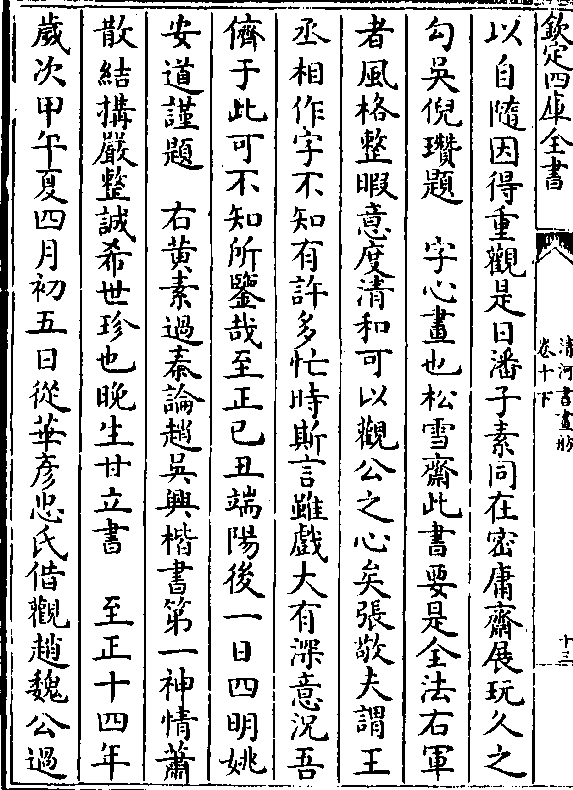 欽定四庫全書
清河書畫舫
卷十下
十三
以自隨因得重觀是日潘子素同在密庸齋展玩久之
勾吳倪瓚題　字心畫也松雪齋此書要是全法右軍
者風格整暇意度清和可以觀公之心矣張敬夫謂王
丞相作字不知有許多忙時斯言雖戲大有深意況吾
儕于此可不知所鑒哉至正己丑端陽後一日四明姚
安道謹題　右黃素過秦論趙吳興楷書第一神情蕭
散結搆嚴整誠希世珍也晚生甘立書　至正十四年
歲次甲午夏四月初五日從華彥忠氏借觀趙魏公過